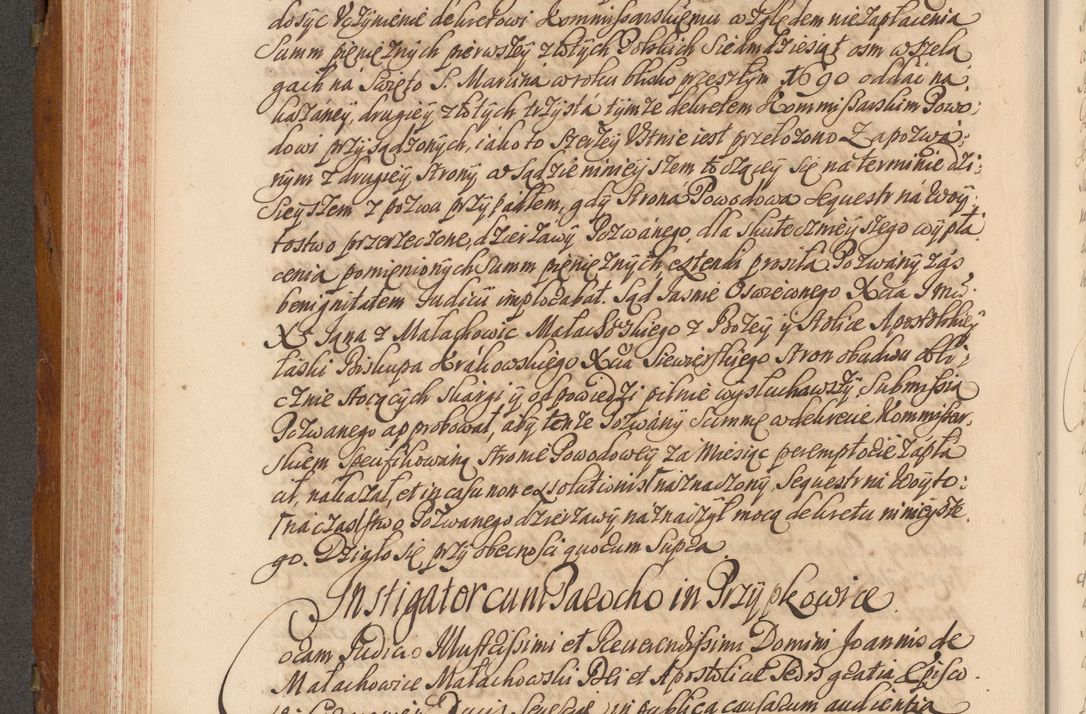 dosyc Vczynienie dekretowi Kommissarskiemu względem niezapłacenia
Summ pienięznych pierwszy złotych Polskich Siedmdziesiąt osm w szela
gach na Swięto S. Marcina w roku blisko przeszłym 1690 oddac na
kazaney, drugiey złotych trzysta tymze dekretem Kommissarskim Powo:
dowi przysądzonych, iako to szerzey Vstnie iest przełozono Zapozwa:
nym z drugiey strony w Sądzie ninieyszem toczącey się na terminie dzi:
sieyszem z pozwa przypadłem, gdy Strona Powodowa Sequestr na Woy
tostwo przerzeczone, dzierzawy Pozwanego, dla skutecznieyszego wypła
cenia pomienionych Summ pienięznych extendi prosiła Pozwany zas
benignitatem Iudicii implorabat. Sąd Iasnie Oswieconego Xcia Imci
X. Jana z Małachowic Małachowskiego z Bozey y Stolice Apostolskiey
łaski Biskupa Krakowskiego Xcia Siewierskiego Stron obudwu obli:
cznie stoiących Skargi y odpowiedzi pilnie wysłuchawszy Submissią
Pozwanego approbował, aby tenze Pozwany Summę w dekrecie Kommissar:
skiem specifikowaną stronie Powodowey za Miesiąc peremptorie zapła
cił, nakazał, et in casu non exsolutionis naznaczony Sequestr na Woyto:
na czas stwo Pozwanego dzierzawy naznaczył mocą dekretu ninieysze
go. Działo się przy obecnosci quorum supra.
Instigator cum Parocho in Przypkowice.
Coram Iudicio Illustrissimi et Reverendissimi Domini Joannis de
Małachowice Małachowski Dei et Apostolicae Sedis gratia Episco
Ducis Severiae in publica causarum audientia